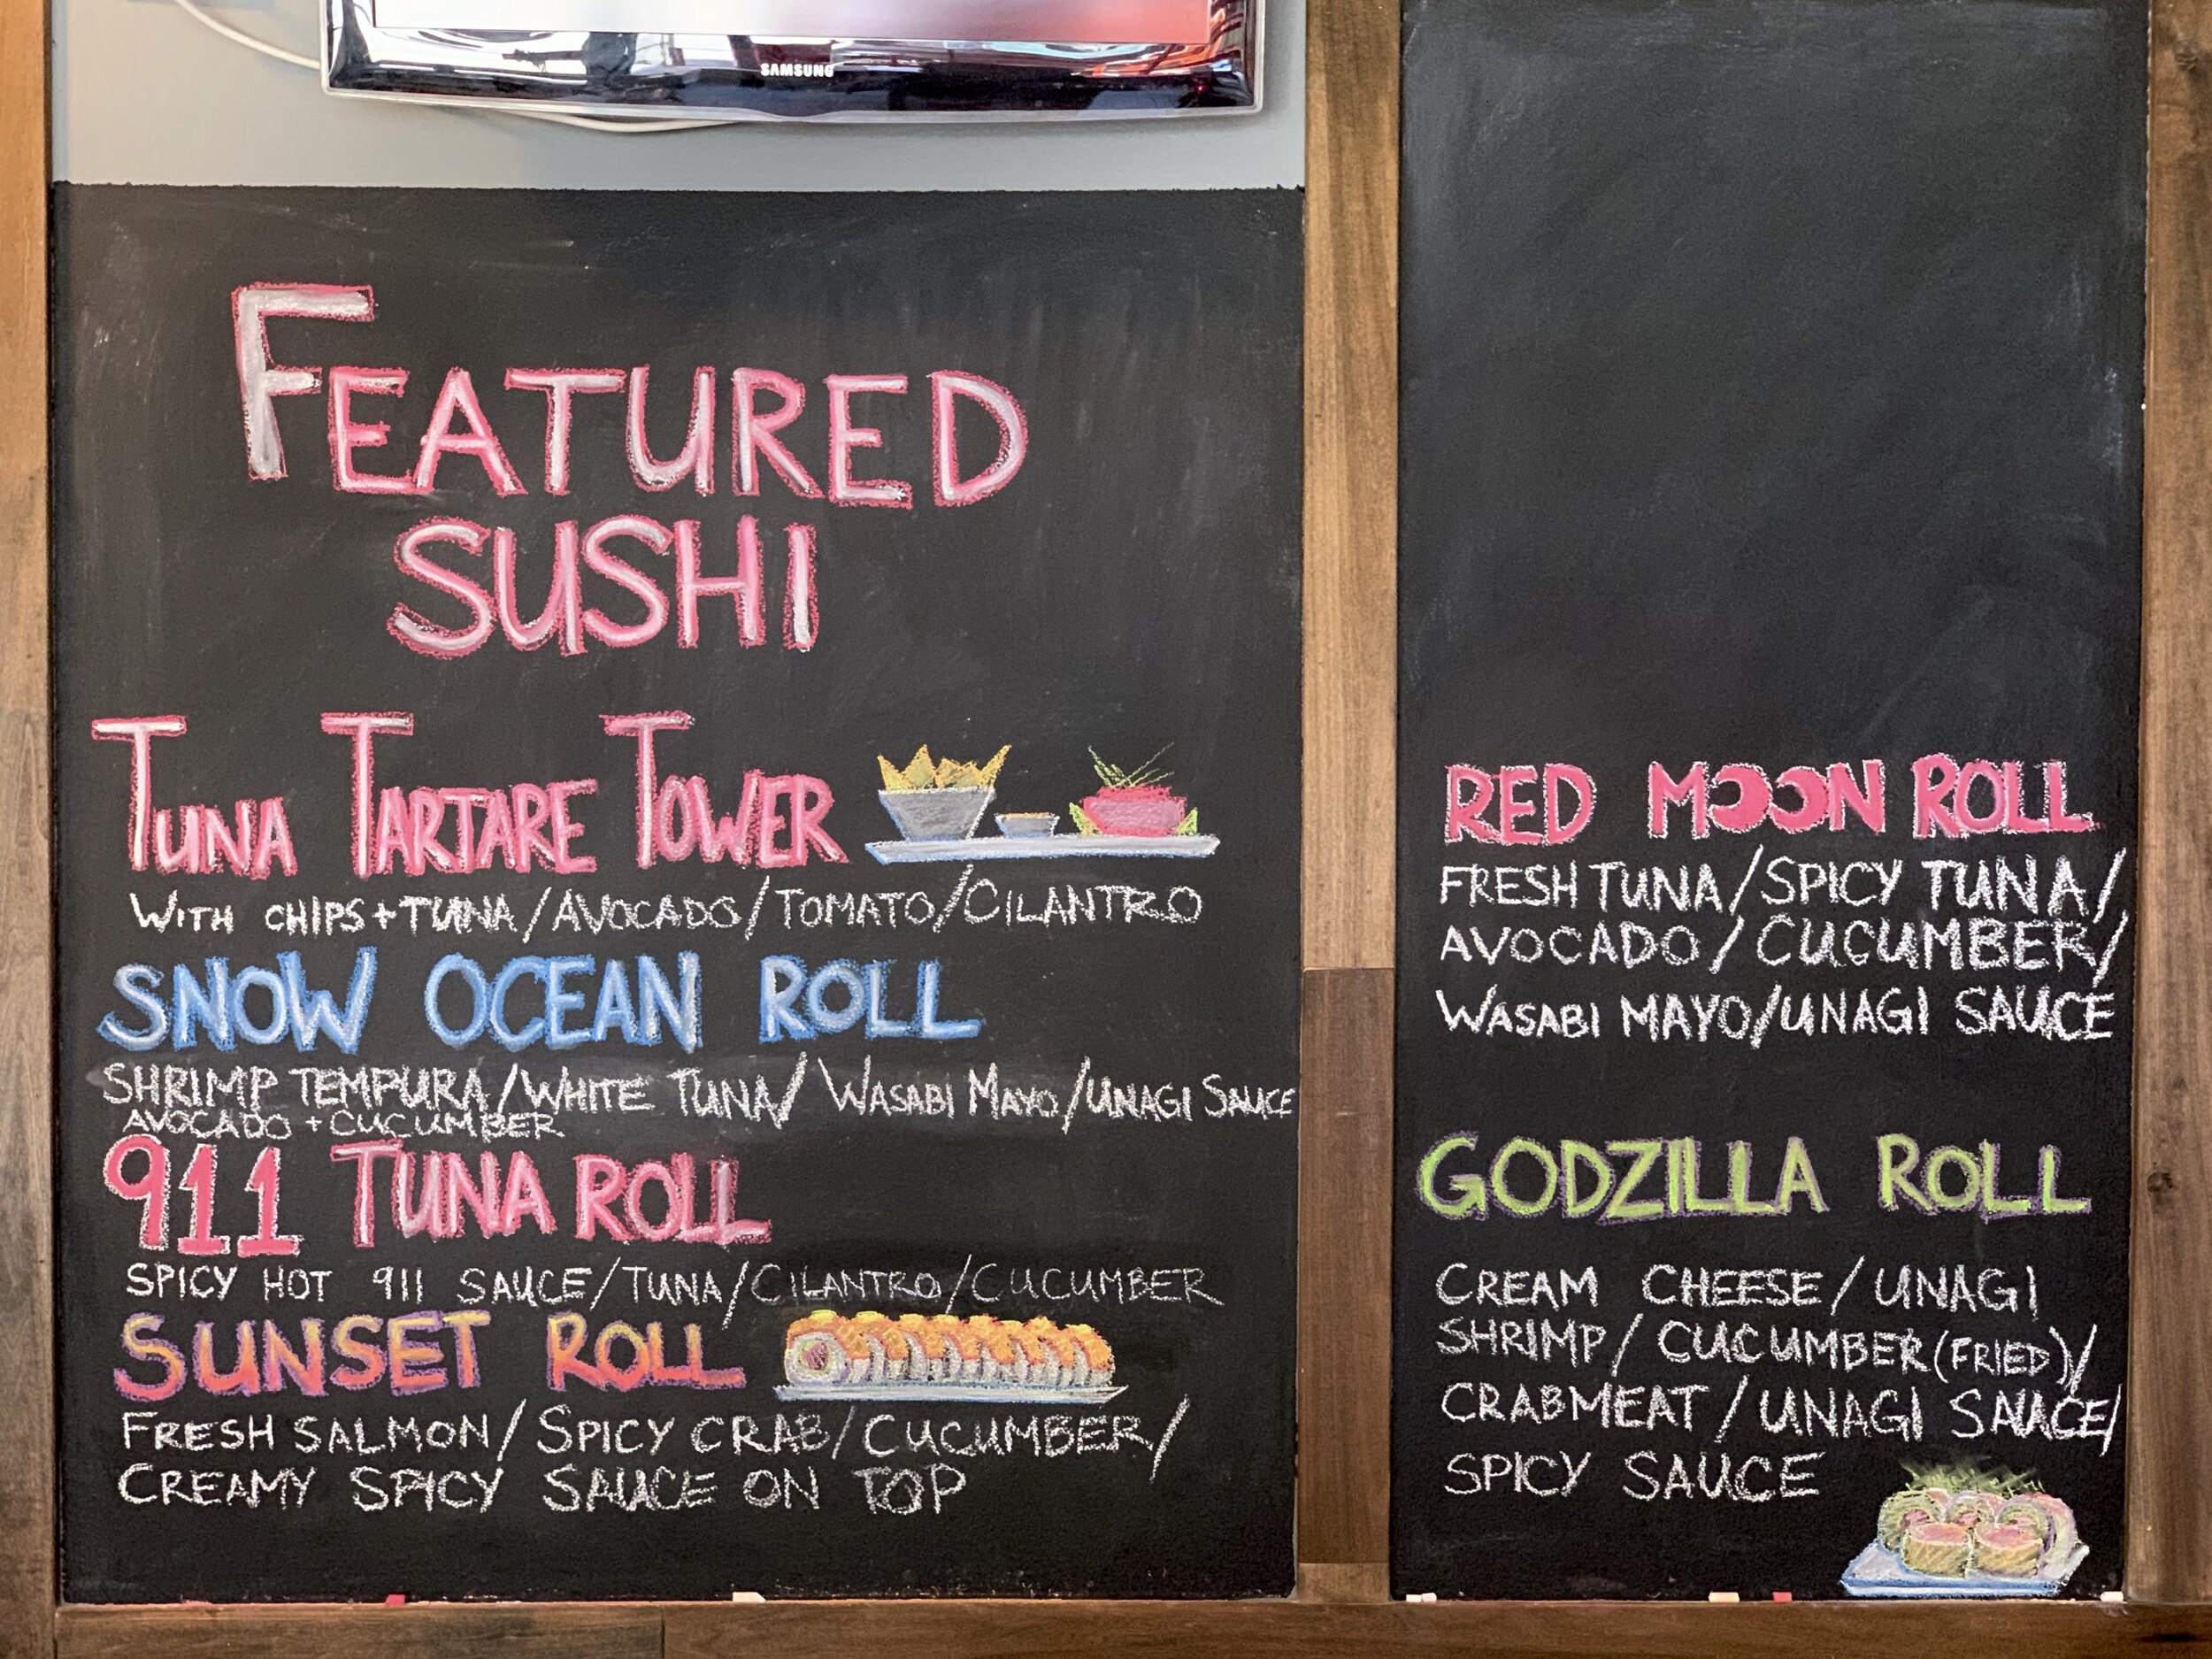 SAMSUNG
FEATURED
SUSHI
TUNA TARTARE TOWER
WITH CHIPS + TUNA / AVOCADO / TOMATO / CILANTRO
SNOW OCEAN ROLL
SHRIMP TEMPURA / WHITE TUNA / WASABI MAYO / UNAGI SAUCE
AVOCADO + CUCUMBER
911 TUNA ROLL
SPICY HOT 911 SAUCE / TUNA / CILANTRO / CUCUMBER
SUNSET ROLL
FRESH SALMON / SPICY CRAB / CUCUMBER /
CREAMY SPICY SAUCE ON TOP
RED MOON ROLL
FRESH TUNA / SPICY TUNA /
AVOCADO / CUCUMBER /
WASABI MAYO / UNAGI SAUCE
GODZILLA ROLL
CREAM CHEESE / UNAGI
SHRIMP / CUCUMBER (FRIED) /
CRABMEAT / UNAGI SAUCE /
SPICY SAUCE